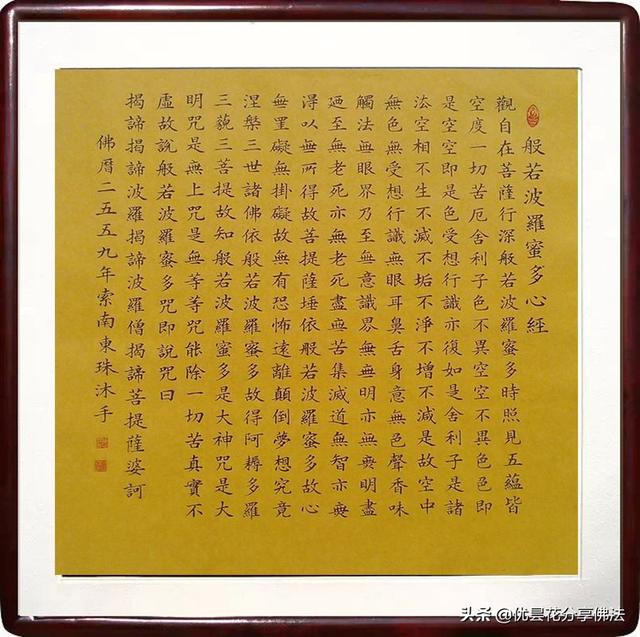 般若波羅蜜多心經
觀自在菩薩行深般若波羅蜜多時照見五蘊皆
空度一切苦厄舍利子色不異空空不異色色即
是空空即是色受想行識亦復如是舍利子是諸
法空相不生不滅不垢不淨不增不減是故空中
無色無受想行識無眼耳鼻舌身意無色聲香味
觸法無眼界乃至無意識界無無明亦無無明盡
廼至無老死亦無老死盡無苦集滅道無智亦無
得以無所得故菩提薩埵依般若波羅蜜多故心
無罣礙無掛礙故無有恐怖遠離顛倒夢想究竟
涅槃三世諸佛依般若波羅蜜多故得阿耨多羅
三藐三菩提故知般若波羅蜜多是大神咒是大
明咒是無上咒是無等等咒能除一切苦真實不
虛故說般若波羅蜜多咒即說咒曰
揭諦揭諦波羅揭諦波羅僧揭諦菩提薩婆訶
佛曆二五五九年索南東珠沐手
头条 @优昙花分享佛法